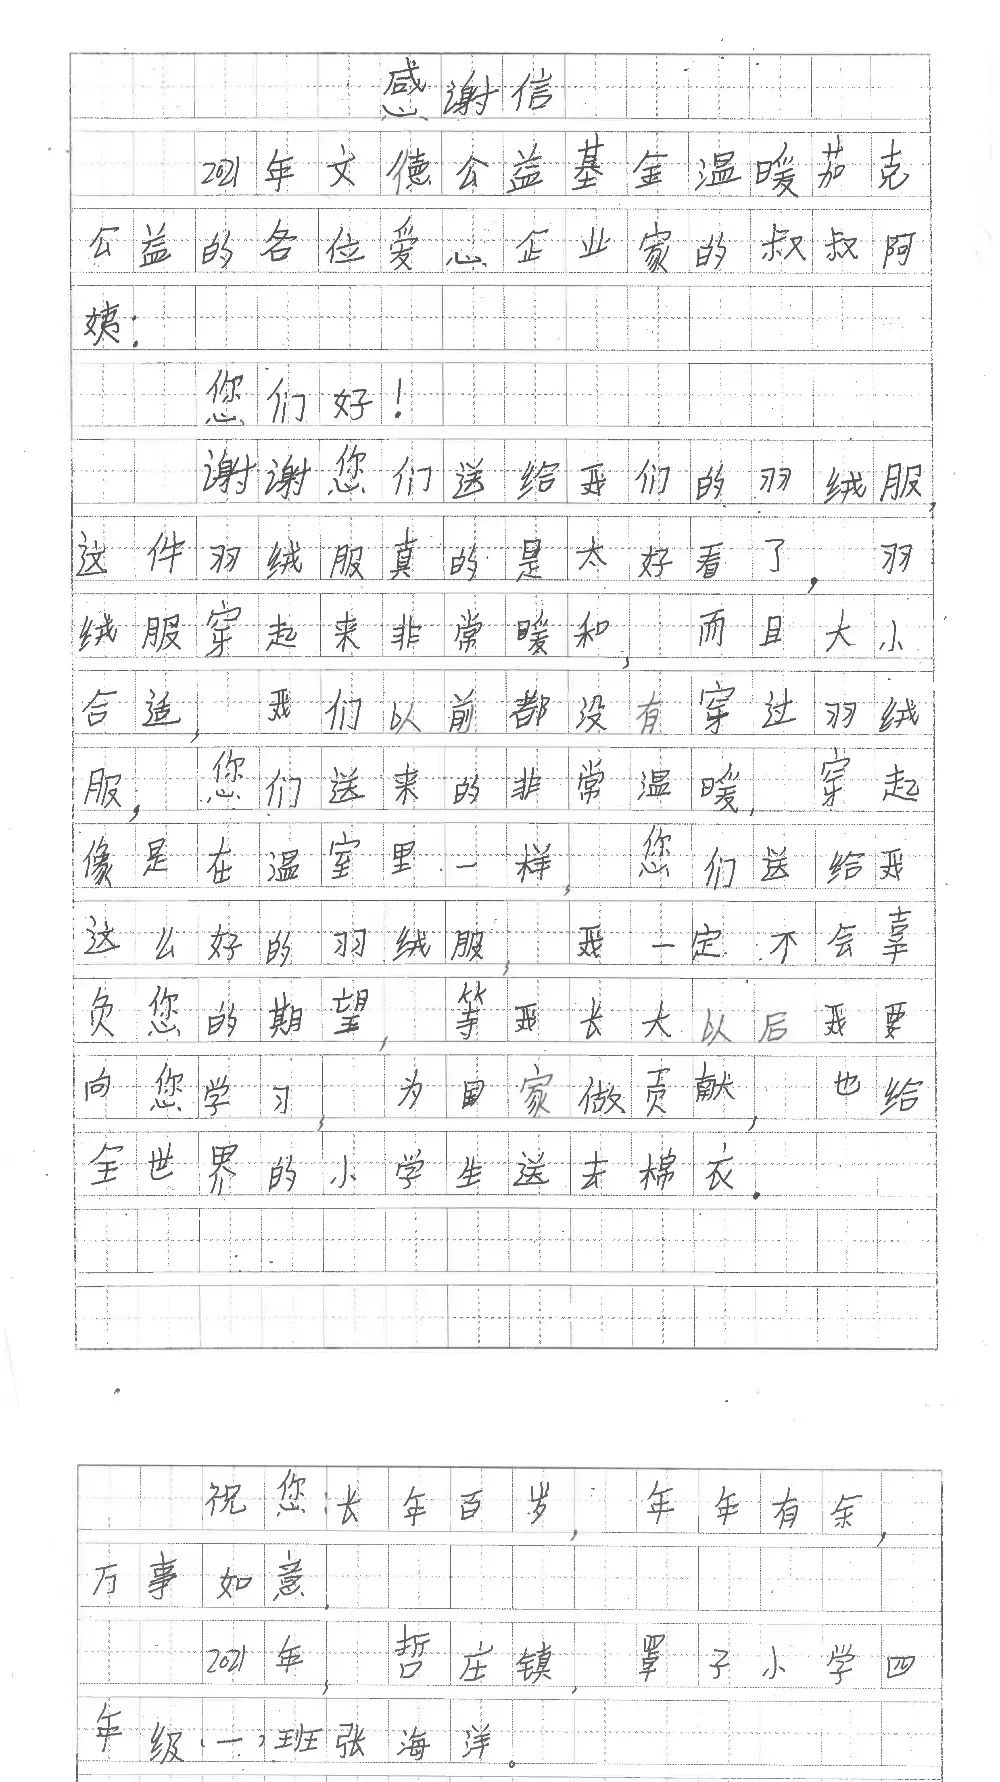 感谢信
2021年文德公益基金温暖茄克
公益的各位爱心企业家的叔叔阿
姨:
您们好!
谢谢您们送给我们的羽绒服,
这件羽绒服真的是太好看了,羽
绒服穿起来非常暖和,而且大小
合适,我们以前都没有穿过羽绒
服,您们送来的非常温暖,穿起
像是在温室里一样,您们送给我
这么好的羽绒服,我一定不会辜
负您的期望,等我长大以后我要
向您学习,为国家做贡献,也给
全世界的小学生送去棉衣.
祝您:长年百岁,年年有余,
万事如意
2021年,哲庄镇,覃子小学四
年级(一)班张海洋。